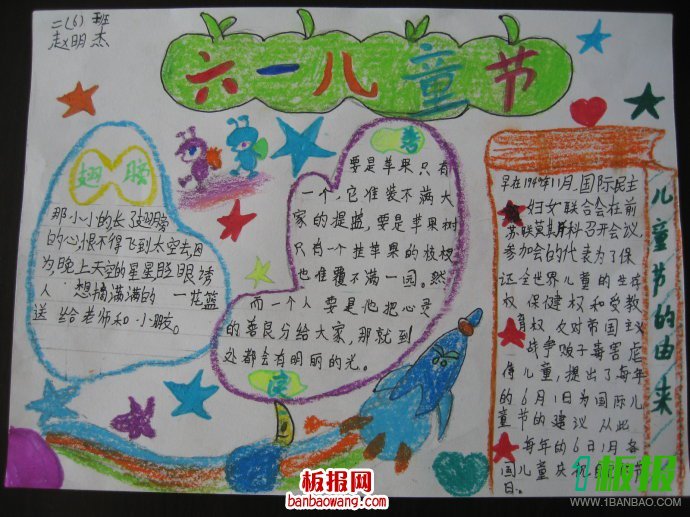 二(6)班
赵明杰
六一儿童节
翅膀
那小小的长了翅膀
的心恨不得飞到太空去,因
为,晚上天空的星星眨眼诱
人 想摘满满的一花篮
送 给老师和小朋友。
秀
要是苹果只有
一个,它准装不满大
家的提蓝,要是苹果树
只有一个挂苹果的枝杈
也准覆不满一园。然
而一个人 要是他把心灵
的善良分给大家,那就到
处都会有明丽的光。
儿童节的由来
早在1949年11月,国际民主
妇女联合会在前
苏联莫斯科召开会议,
参加会的代表为了保
证全世界儿童的生存
权 保健权和受教
育权 反对帝国主义
战争贩子毒害虐
待儿童,提出了每年
的6月1日为国际儿
童节的建议 从此
每年的6月1日各
国儿童庆祝
日。
板报网
banbaowang.com
板报
WWW.1BANBAO.COM